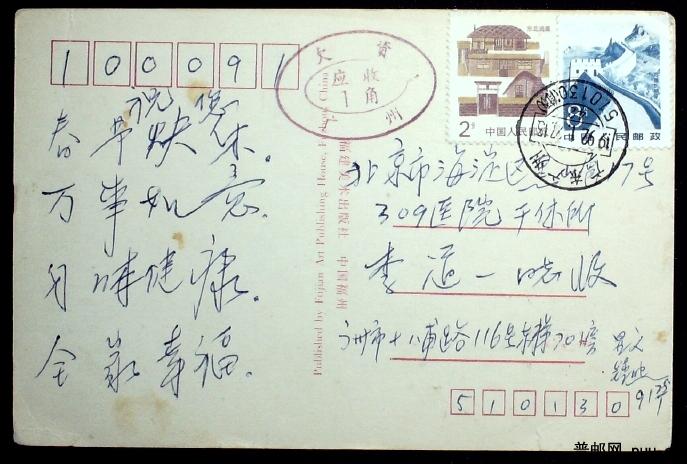 100091
欠资
应收
1角
州
祝您
春节快乐.
万事如意.
身体健康.
全家幸福.
东北民居
2分
中国人民邮政
民邮政
510130
北京市海淀区
17号
309医院干休所
李道一 收
州市十八甫路116号
510130
Published by Fujian Art Publishing House, Fuzhou, China
福建美术出版社 中国福州
普邮网